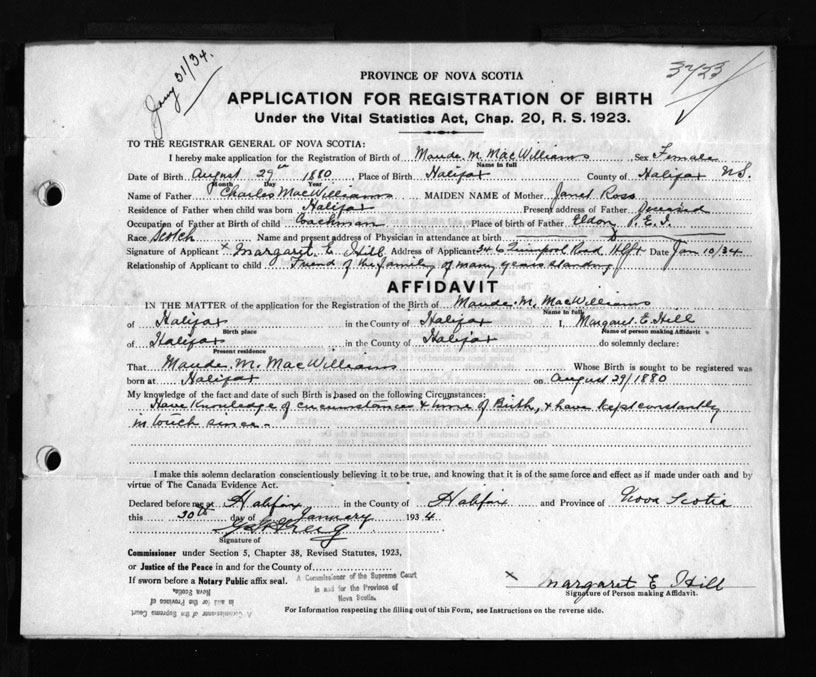 Jany 31/34.
3723
PROVINCE OF NOVA SCOTIA
APPLICATION FOR REGISTRATION OF BIRTH
Under the Vital Statistics Act, Chap. 20, R. S. 1923.
TO THE REGISTRAR GENERAL OF NOVA SCOTIA:
I hereby make application for the Registration of Birth of Maude. M. MacWilliams Sex Female
Name in full
Date of Birth August 29th 1880 Place of Birth Halifax County of Halifax N.S.
Month Day Year
Name of Father Charles MacWilliams MAIDEN NAME of Mother Janet Ross
Residence of Father when child was born Halifax Present address of Father
Occupation of Father at Birth of child Coachman Place of birth of Father Eldon P.E.I.
Race Scotch Name and present address of Physician in attendance at birth
Signature of Applicant x Margaret E. Hill Address of Applicant Quinpool Road Hlfx Date Jan 10/34
Relationship of Applicant to child Friend of the family of many years standing
AFFIDAVIT
IN THE MATTER of the application for the Registration of the Birth of Maude. M. MacWilliams
Name in full
of Halifax in the County of Halifax I, Margaret E. Hill
Birth place Name of person making Affidavit
of Halifax in the County of Halifax do solemnly declare:
Present residence
That Maude. M. MacWilliams Whose Birth is sought to be registered was
born at Halifax on August 29/1880
My knowledge of the fact and date of such Birth is based on the following Circumstances:
Have knowledge of circumstances & time of Birth, & have kept constantly
in touch since -
I make this solemn declaration conscientiously believing it to be true, and knowing that it is of the same force and effect as if made under oath and by
virtue of The Canada Evidence Act.
Declared before me at Halifax in the County of Halifax and Province of Nova Scotia
this 30th day of January 1934.
Signature of
Commissioner under Section 5, Chapter 38, Revised Statutes, 1923,
or Justice of the Peace in and for the County of
If sworn before a Notary Public affix seal.
A Commissioner of the Supreme Court
in and for the Province of
Nova Scotia.
x Margaret E Hill
Signature of Person making Affidavit.
A Commissioner of the Supreme Court
in and for the Province of
Nova Scotia.
For Information respecting the filling out of this Form, see Instructions on the reverse side.